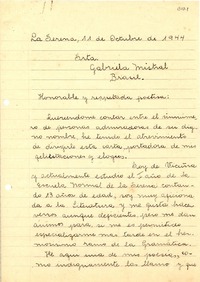 001
La Serena, 11 de Octubre de 1944
Srta.
Gabriela Mistral
Brasil.
Honorable y respetada poetisa:
Queriéndome contar entre el sinnúme-
ro de personas admiradoras de su dig-
no nombre he tenido el atrevimiento
de dirigirle esta carta, portadora de mis
felicitaciones y elogios.
Soy de Vicuña
y actualmente estudio el año de la
Escuela Normal de La Serena, contan-
do 18 años de edad, soy muy aficiona-
da a la Literatura, y me gusta hacer
versos aunque deficientes, pero me dan
ánimos para, si me es permitido
especializarme más tarde en el her-
mosísimo ramo de la Gramática.
He aquí una de mis poesías, co-
mo indignamente las llamo y que